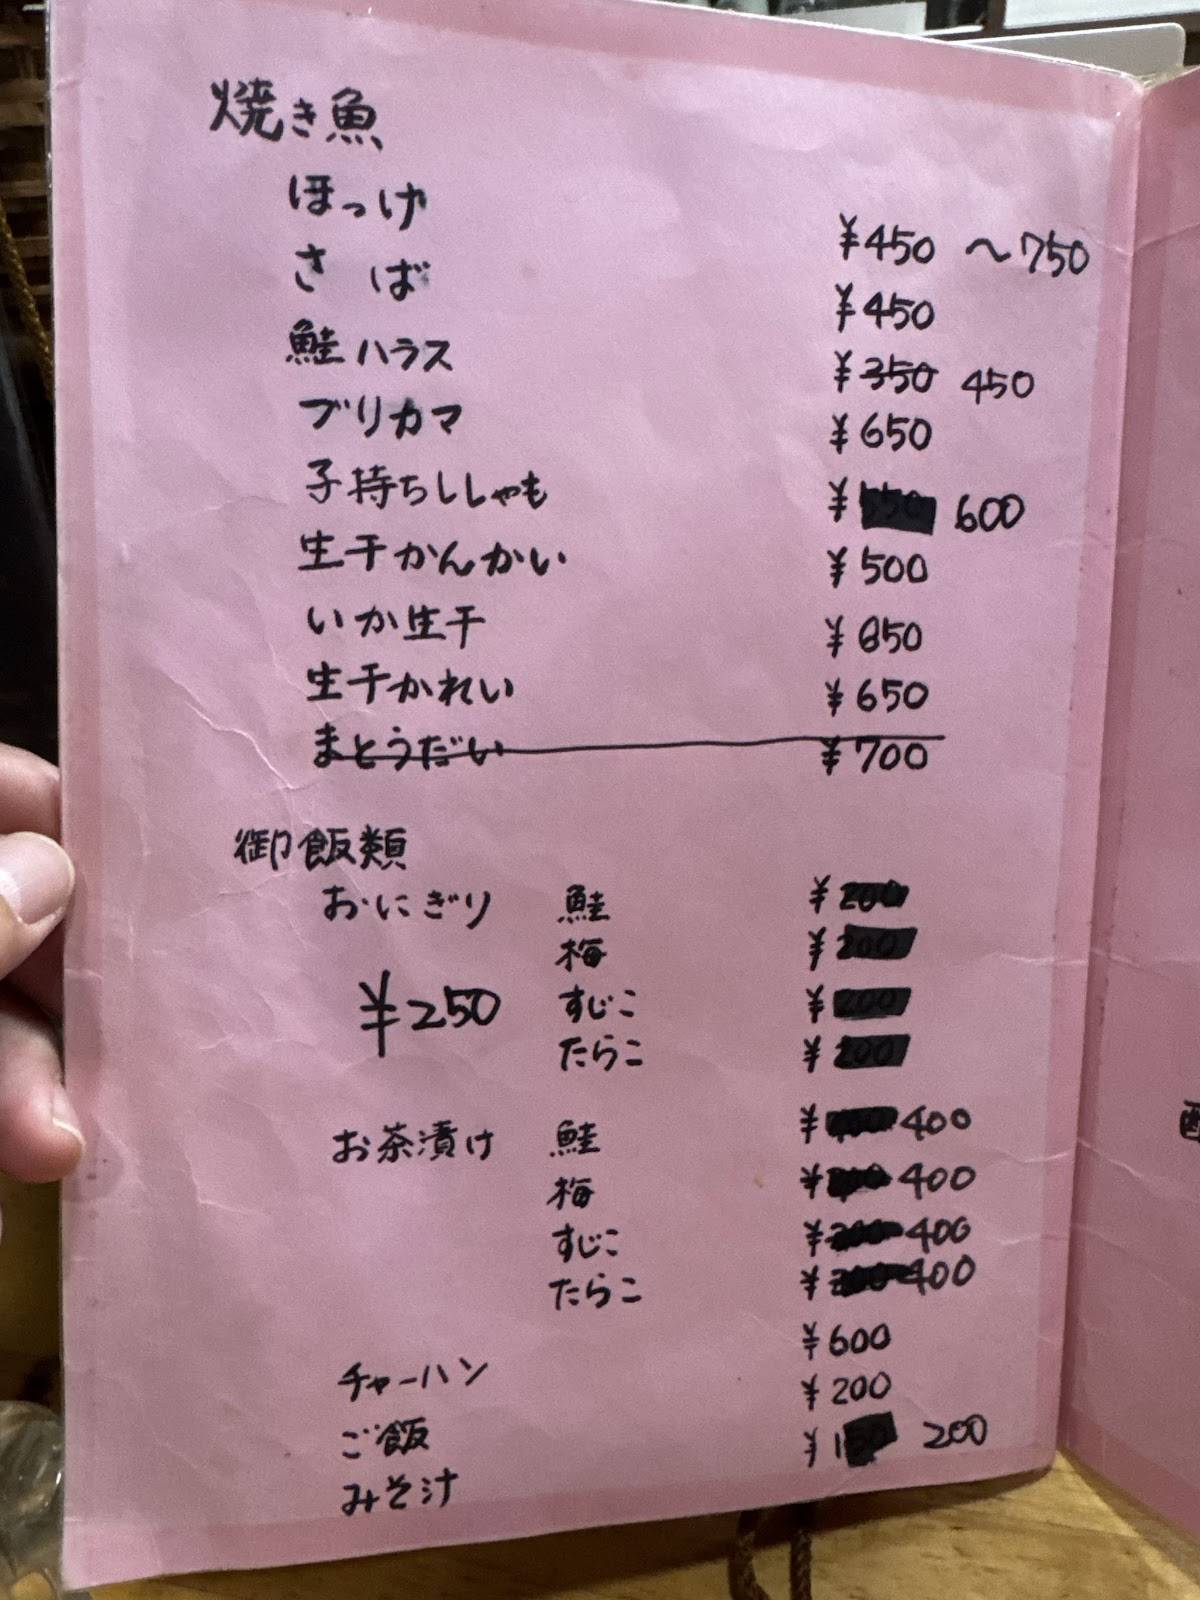 焼き魚
ほっけ ¥450 〜750
さば ¥450
鮭ハラス ¥350 450
ブリカマ ¥650
子持ちししゃも ¥550 600
生干かんかい ¥500
いか生干 ¥650
生干かれい ¥650
まとうだい ¥700
御飯類
おにぎり 鮭 ¥200
梅 ¥200
¥250 すじこ ¥200
たらこ ¥200
お茶漬け 鮭 ¥ 400
梅 ¥ 400
すじこ ¥ 400
たらこ ¥ 400
チャーハン ¥600
ご飯 ¥200
みそ汁 ¥150 200